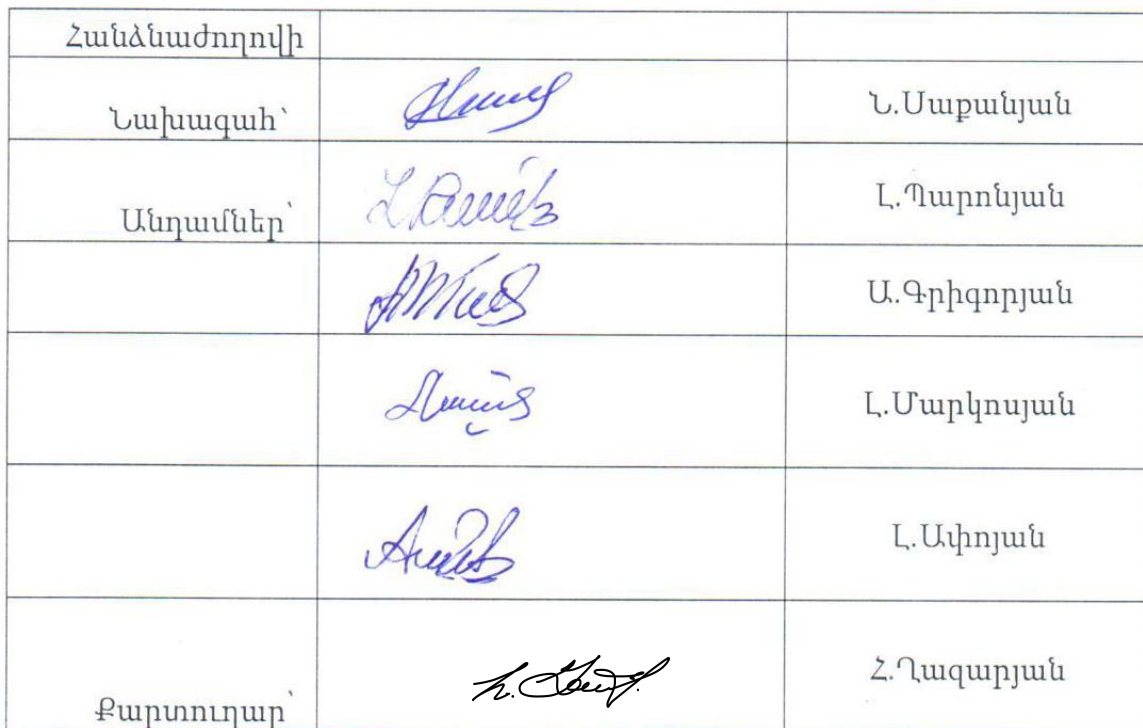 Հանձնաժողովի
Նախագահ՝ Ն.Սաքանյան
Անդամներ՝ Լ.Պարոնյան
Ա.Գրիգորյան
Լ.Մարկոսյան
Լ.Ափոյան
Քարտուղար՝ Հ.Ղազարյան